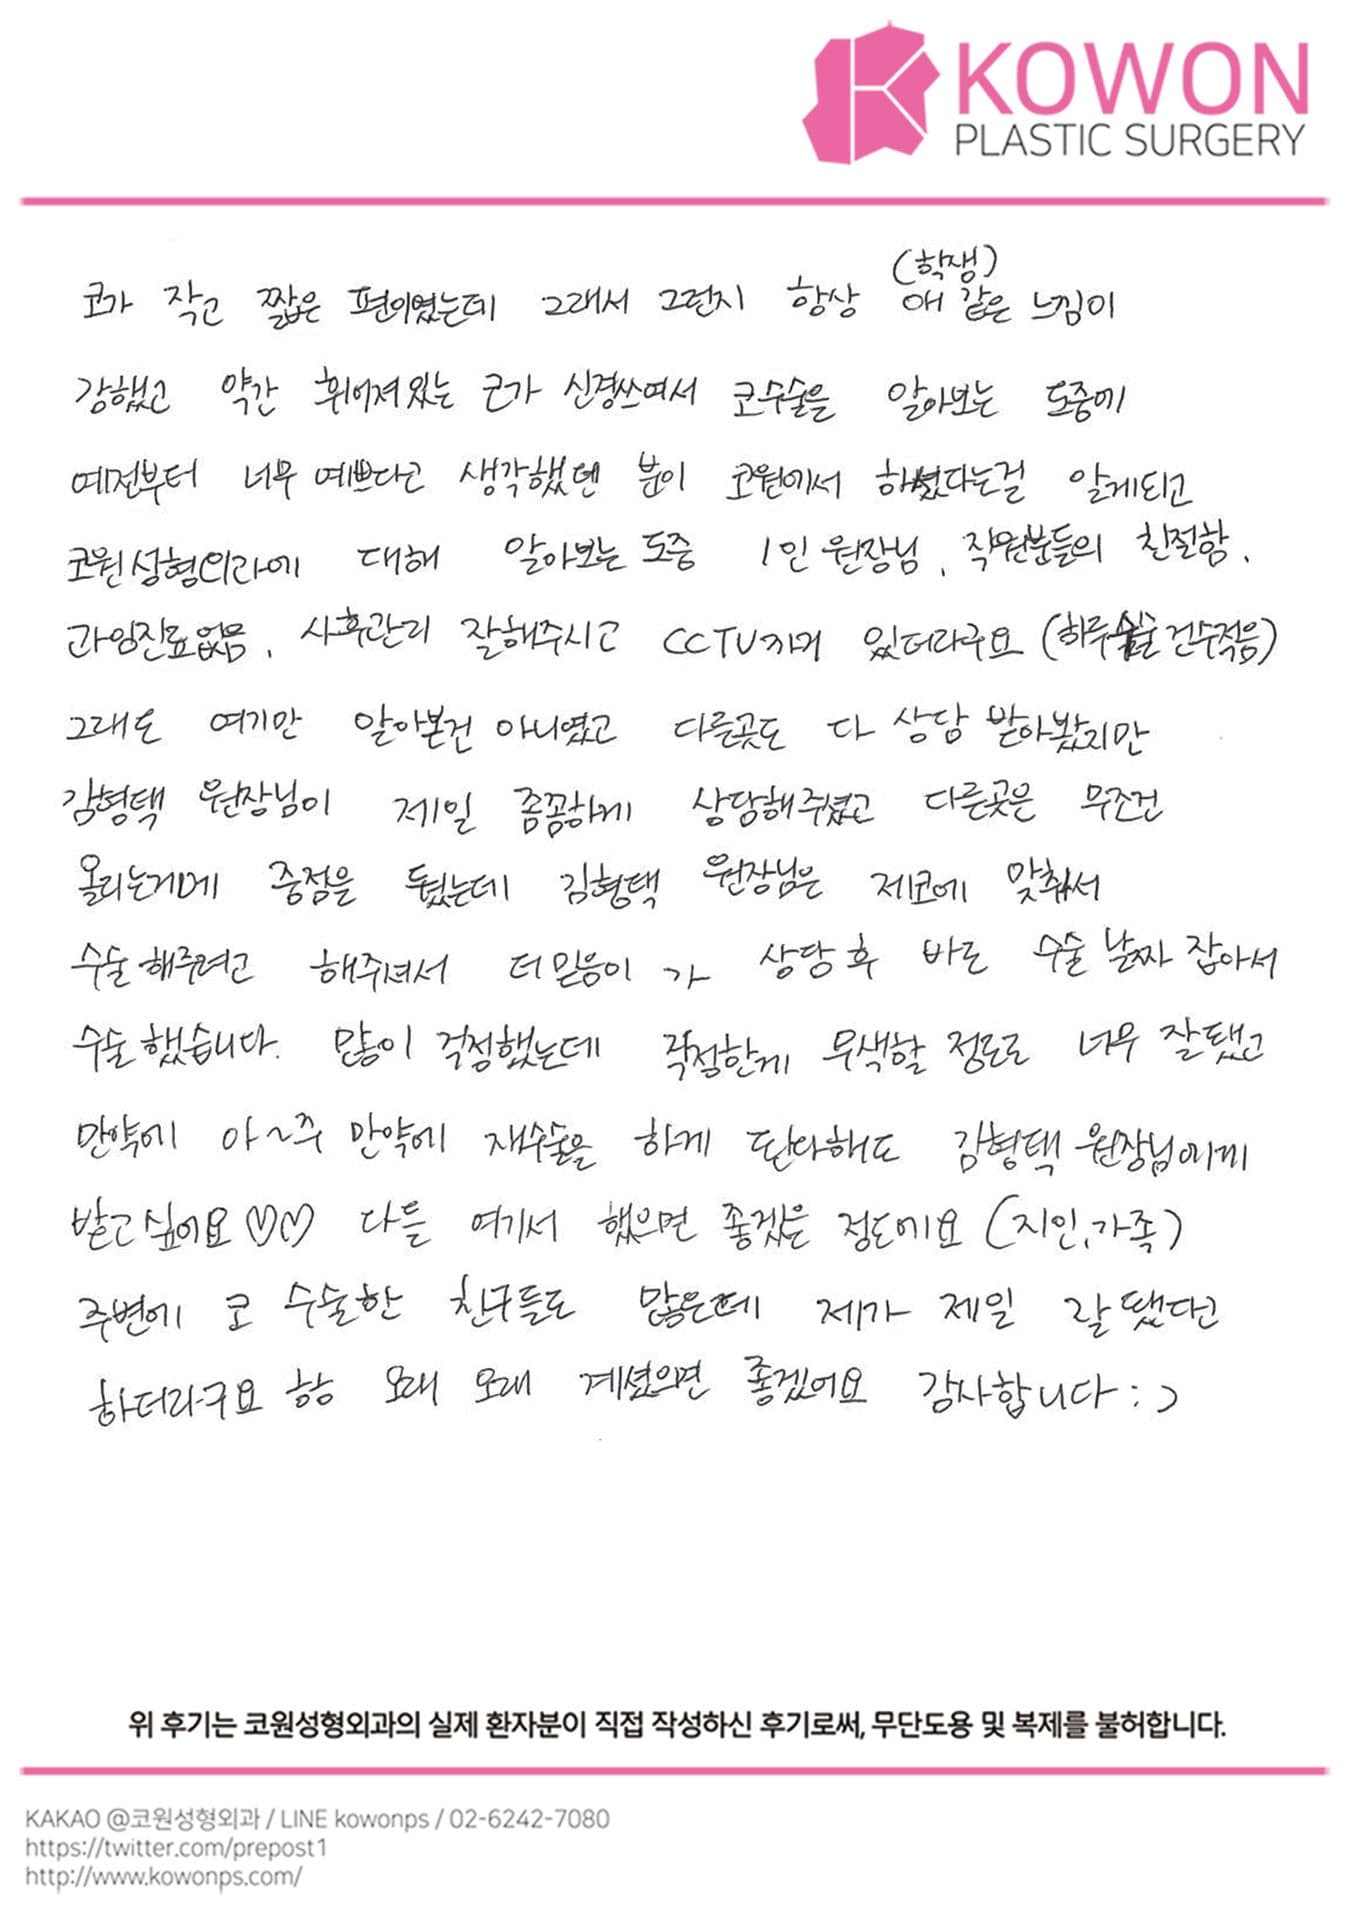 KOWON
PLASTIC SURGERY
(학생)
코가 작고 짧은 편이였는데 그래서 그런지 항상 애 같은 느낌이
강했고 약간 휘어져있는 코가 신경쓰여서 코수술을 알아보는 도중에
예전부터 너무 예쁘다고 생각했던 분이 코원에서 하셨다는걸 알게되고
코원성형외과에 대해 알아보는 도중 1인 원장님, 직원분들의 친절함,
과잉진료없음, 사후관리 잘해주시고 CCTV까지 있더라구요 (하루 수술 건수적음)
그래도 여기만 알아본건 아니였고 다른곳도 다 상담 받아봤지만
김형택 원장님이 제일 꼼꼼하게 상담해주셨고 다른곳은 무조건
올리는거에 중점을 뒀는데 김형택 원장님은 제코에 맞춰서
수술해주려고 해주셔서 더 믿음이 가 상담 후 바로 수술 날짜 잡아서
수술했습니다. 많이 걱정했는데 걱정한게 무색할 정도로 너무 잘됐고
만약에 아~주 만약에 재수술을 하게 된다해도 김형택 원장님에게
받고싶어요♡♡ 다들 여기서 했으면 좋겠는 정도에요 (지인,가족)
주변에 코 수술한 친구들도 많은데 제가 제일 잘 됐다고
하더라구요 ㅎㅎ 오래 오래 계셨으면 좋겠어요 감사합니다 : )
위 후기는 코원성형외과의 실제 환자분이 직접 작성하신 후기로써, 무단도용 및 복제를 불허합니다.
KAKAO @코원성형외과 / LINE kowonps / 02-6242-7080
https://twitter.com/prepost1
http://www.kowonps.com/